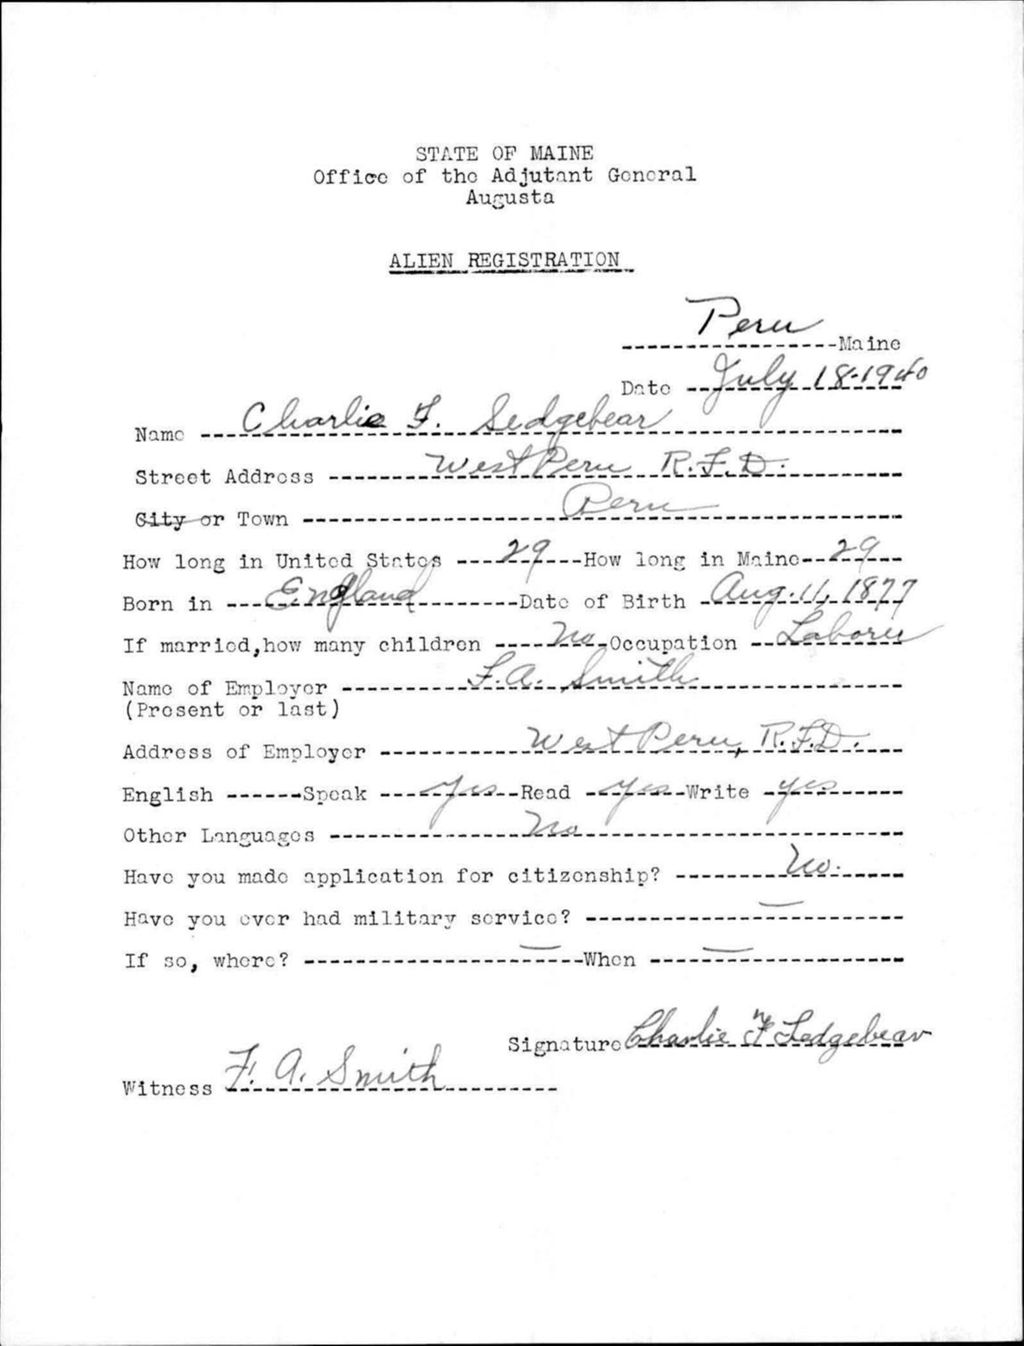 STATE OF MAINE
Office of the Adjutant General
Augusta
ALIEN REGISTRATION
Peru Maine
Date July 18-1940
Name Charlie F. Sedgebear
Street Address West Peru R.F.D.
City or Town Peru
How long in United States 29 How long in Maine 29
Born in England Date of Birth Aug. 11, 1877
If married, how many children No Occupation Laborer
Name of Employer F. A. Smith
(Present or last)
Address of Employer West Peru, R.F.D.
English Speak Yes Read Yes Write yes
Other Languages No
Have you made application for citizenship? No.
Have you ever had military service? —
If so, where? — When —
Signature Charlie F Sedgebear
Witness F. A. Smith